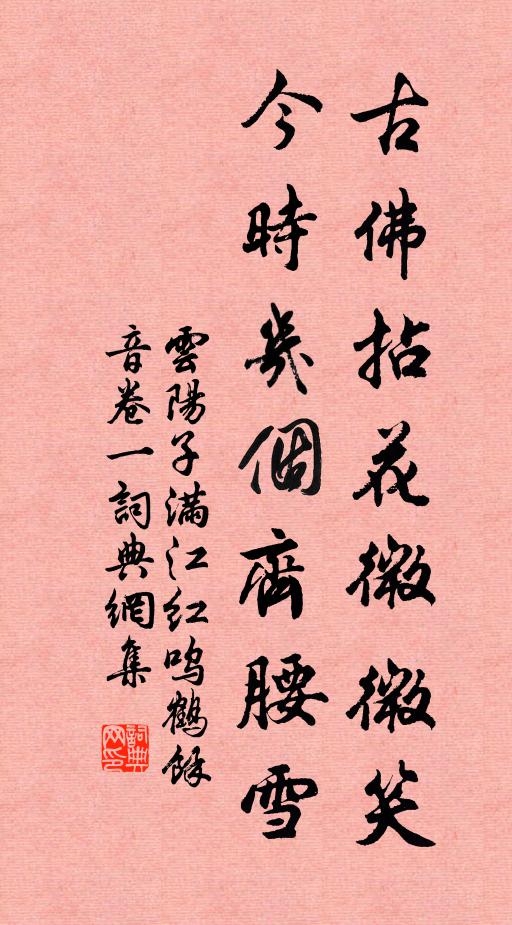 古佛拈花微微笑
今時幾個齊腰雪
雲陽子滿江紅鳴鶴餘
音卷一詞典網集
詞典
网印